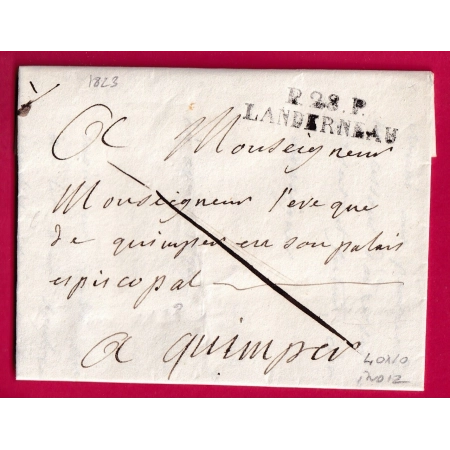 1823
P.28.P.
LANDERNEAU
A Monseigneur
Monseigneur l'eveque
de quimper en son palais
episcopal
a quimper